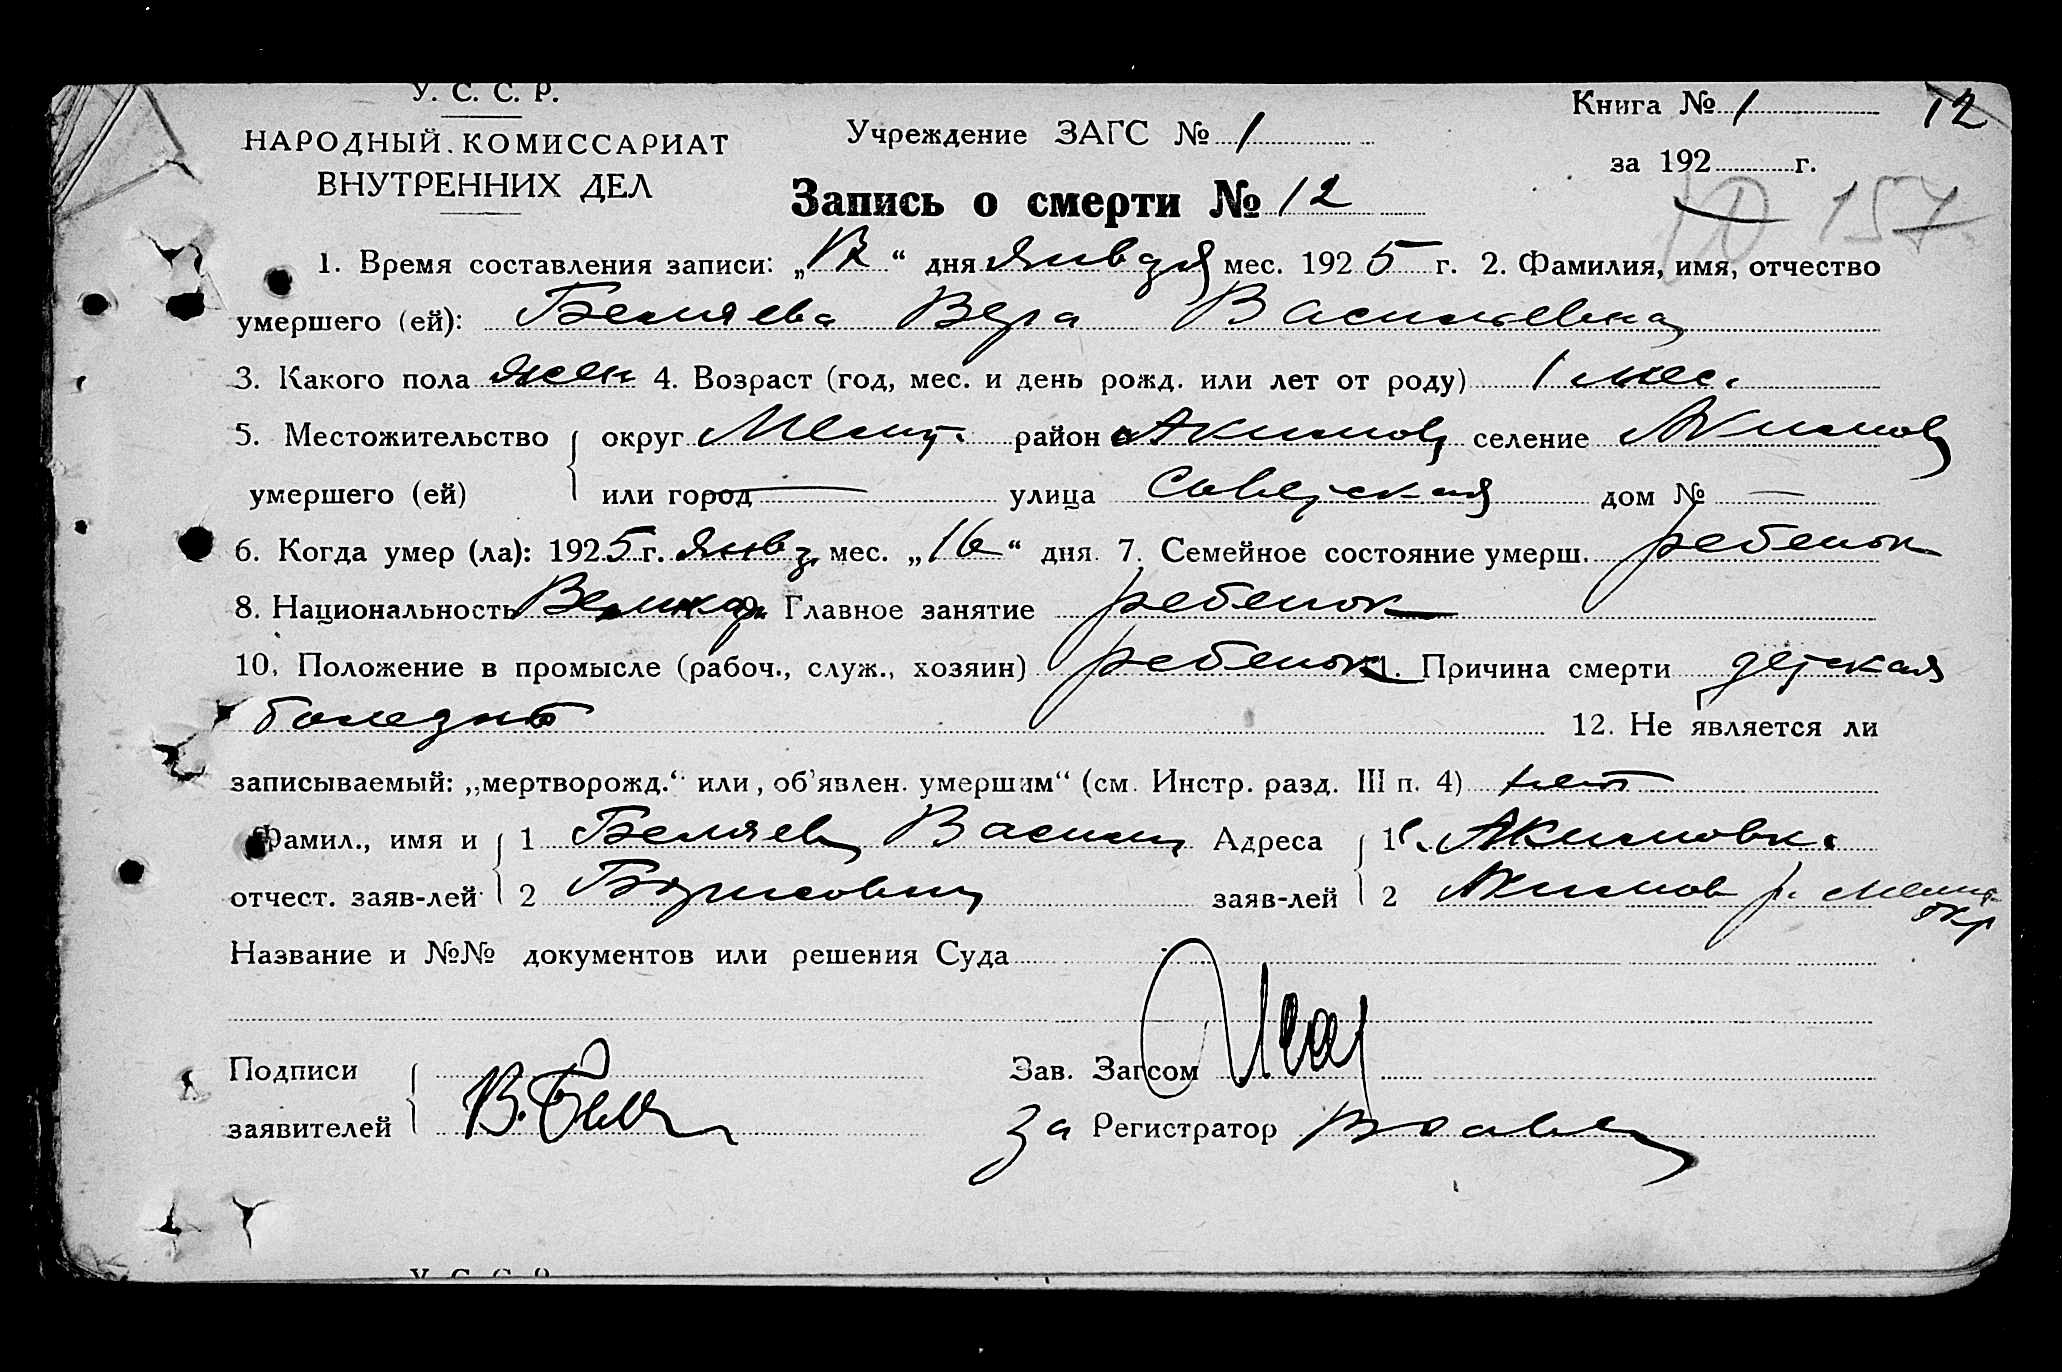 У. С. С. Р.
НАРОДНЫЙ КОМИССАРИАТ
ВНУТРЕННИХ ДЕЛ
Учреждение ЗАГС № 1
Книга № 1
12
за 192 г.
Запись о смерти № 12
157
1. Время составления записи: „ “ дня января мес. 1925 г. 2. Фамилия, имя, отчество
умершего (ей): Беляева Вера Васильевна
3. Какого пола жен 4. Возраст (год, мес. и день рожд. или лет от роду) 1 мес.
5. Местожительство округ Мелит. район Акимов селение Акимов
умершего (ей) или город — улица Советская дом № —
6. Когда умер (ла): 1925 г. янв мес. „16“ дня. 7. Семейное состояние умерш. ребенок
8. Национальность Великор 9. Главное занятие ребенок
10. Положение в промысле (рабоч., служ., хозяин) ребенок 11. Причина смерти детская
болезнь 12. Не является ли
записываемый: „мертворожд.“ или „об'явлен. умершим“ (см. Инстр. разд. III п. 4) нет
Фамил., имя и 1 Беляев Василий Адреса 1 с. Акимовк.
отчест. заяв-лей 2 Борисович заяв-лей 2 Акимов р. Мелит. окр
Название и №№ документов или решения Суда
Подписи Зав. Загсом
заявителей В. Беля За Регистратор
У. С. С. Р.